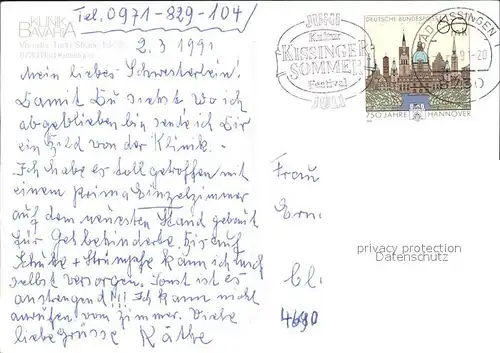 Tel. 0971-829-104/
KLINIK
BAVARIA
Von-der-Tann-Straße
8730 Bad Kissingen
2.3 1991
Mein liebes Schwesterlein!
Damit Du siehst wo ich
abgeblieben bin sende ich Dir
ein Bild von der Klinik. -
Ich habe es toll getroffen mit
einem prima Einzelzimmer
auf dem neuesten Stand gebaut
für Gehbehinderte. Bis auf
Schuhe + Strümpfe kann ich mich
selbst versorgen. Sonst ist es
anstrengend!!! Ich kann nicht
anrufen vom Zimmer. Viele
liebe Grüsse Käthe
JUNI
Kultur
KISSINGER
SOMMER
Festival
JULI
DEUTSCHE BUNDESPOST
60
750 JAHRE HANNOVER
BAD KISSINGEN
-20
8730
Frau
Erne
privacy protection
Datenschutz
4690